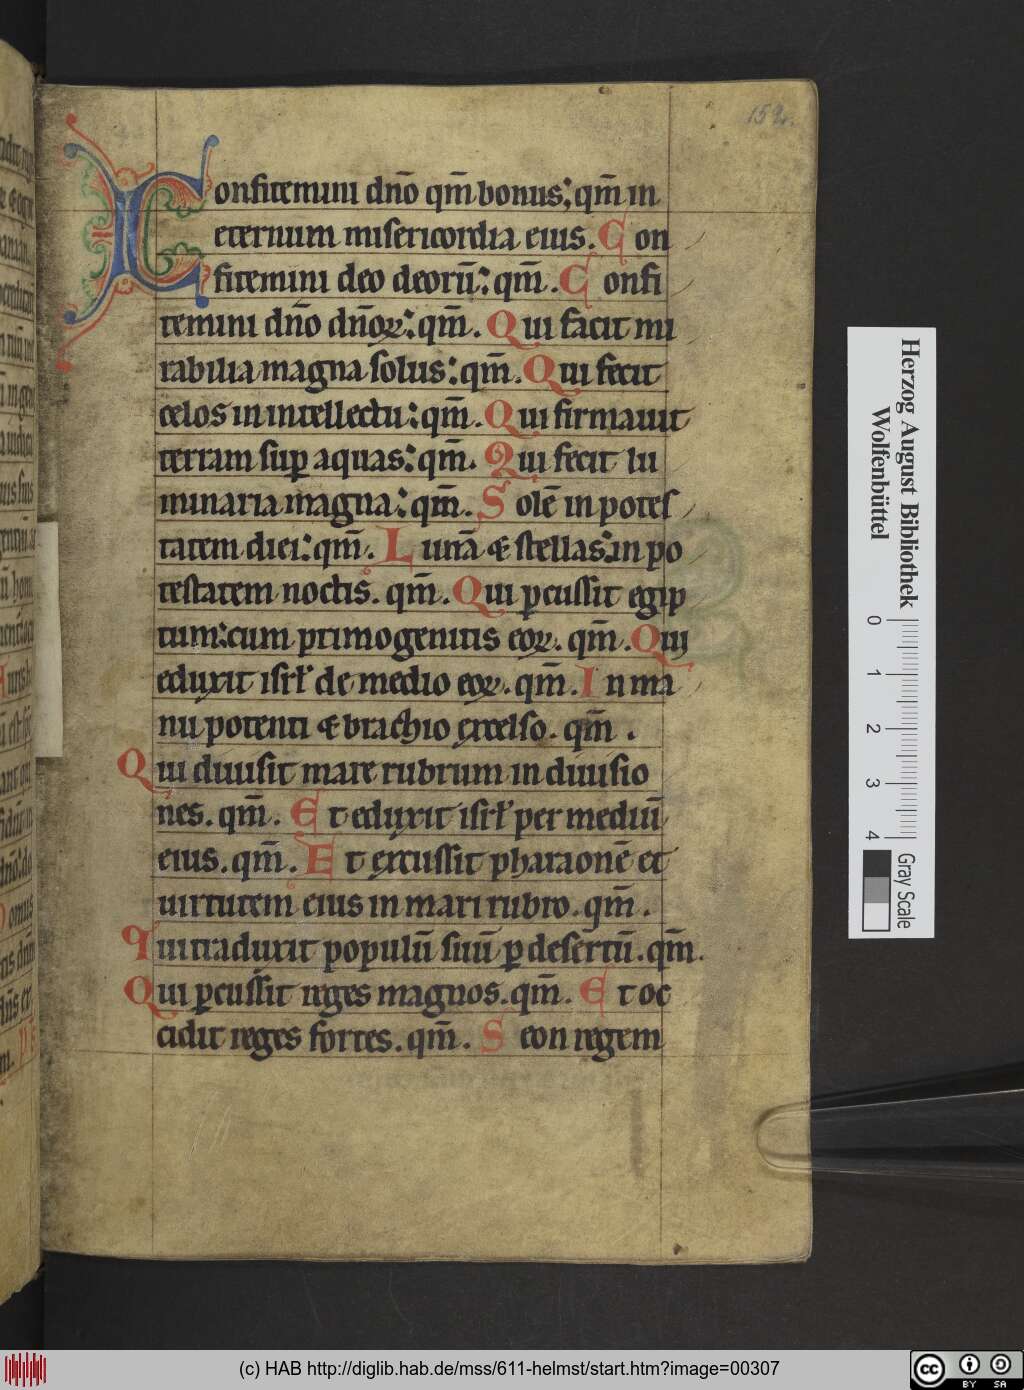 152.
Confitemini dño qm̄ bonus; qm̄ in
eternum misericordia eius. Con
fitemini deo deorū: qm̄. Confi
temini dño dñoꝝ: qm̄. Qui facit mi
rabilia magna solus: qm̄. Qui fecit
celos in intellectu: qm̄. Qui firmauit
terram sup aquas: qm̄. Qui fecit lu
minaria magna: qm̄. Solē in potes
tatem diei: qm̄. Lunā & stellas: in po
testatem noctis. qm̄. Qui ꝑcussit egip
tum: cum primogenitis eoꝝ. qm̄. Qui
eduxit isrł de medio eoꝝ. qm̄. In ma
nu potenti & brachio excelso. qm̄.
Qui diuisit mare rubrum in diuisio
nes. qm̄. Et eduxit isrł per mediū
eius. qm̄. Et excussit pharaonē et
uirtutem eius in mari rubro. qm̄.
Qui traduxit populū suū ꝑ desertū. qm̄.
Qui ꝑcussit reges magnos. qm̄. Et oc
cidit reges fortes. qm̄. Seon regem
Herzog August Bibliothek
Wolfenbüttel
0 1 2 3 4
Gray Scale
(c) HAB http://diglib.hab.de/mss/611-helmst/start.htm?image=00307
cc BY SA